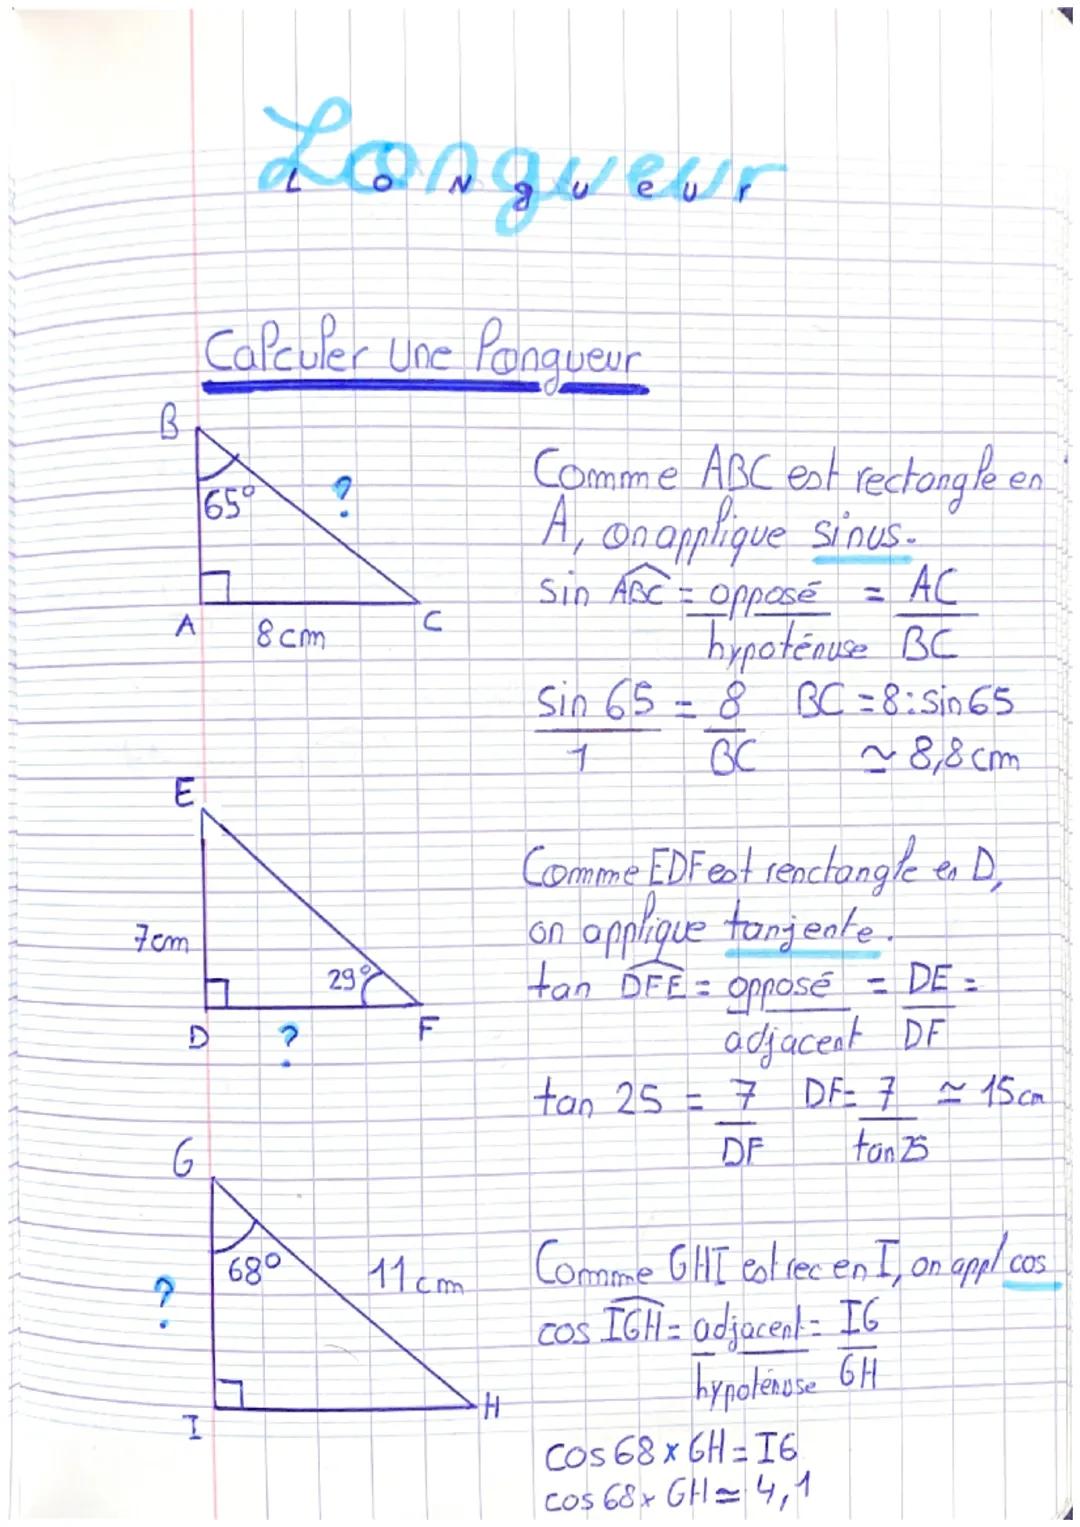 Longueur
L O N g u e u r
Calculer une longueur
B
65°
?
A
8 cm
C
Comme ABC est rectangle en
A, on applique sinus.
sin ABC = opposé = AC
hypoténuse BC
sin 65 = 8 BC = 8 : sin 65
1 BC ≃ 8,8 cm
E
7cm
29°
D
?
F
Comme EDF est renctangle en D,
on applique tanjente.
tan DFE = opposé = DE =
adjacent DF
tan 25 = 7 DF = 7 ≃ 15 cm
DF tan 25
G
68°
11 cm
?
I
H
Comme GHI est rec en I, on appl cos
cos IGH = adjacent = IG
hypoténuse GH
cos 68 x GH = IG
cos 68 x GH ≃ 4,1